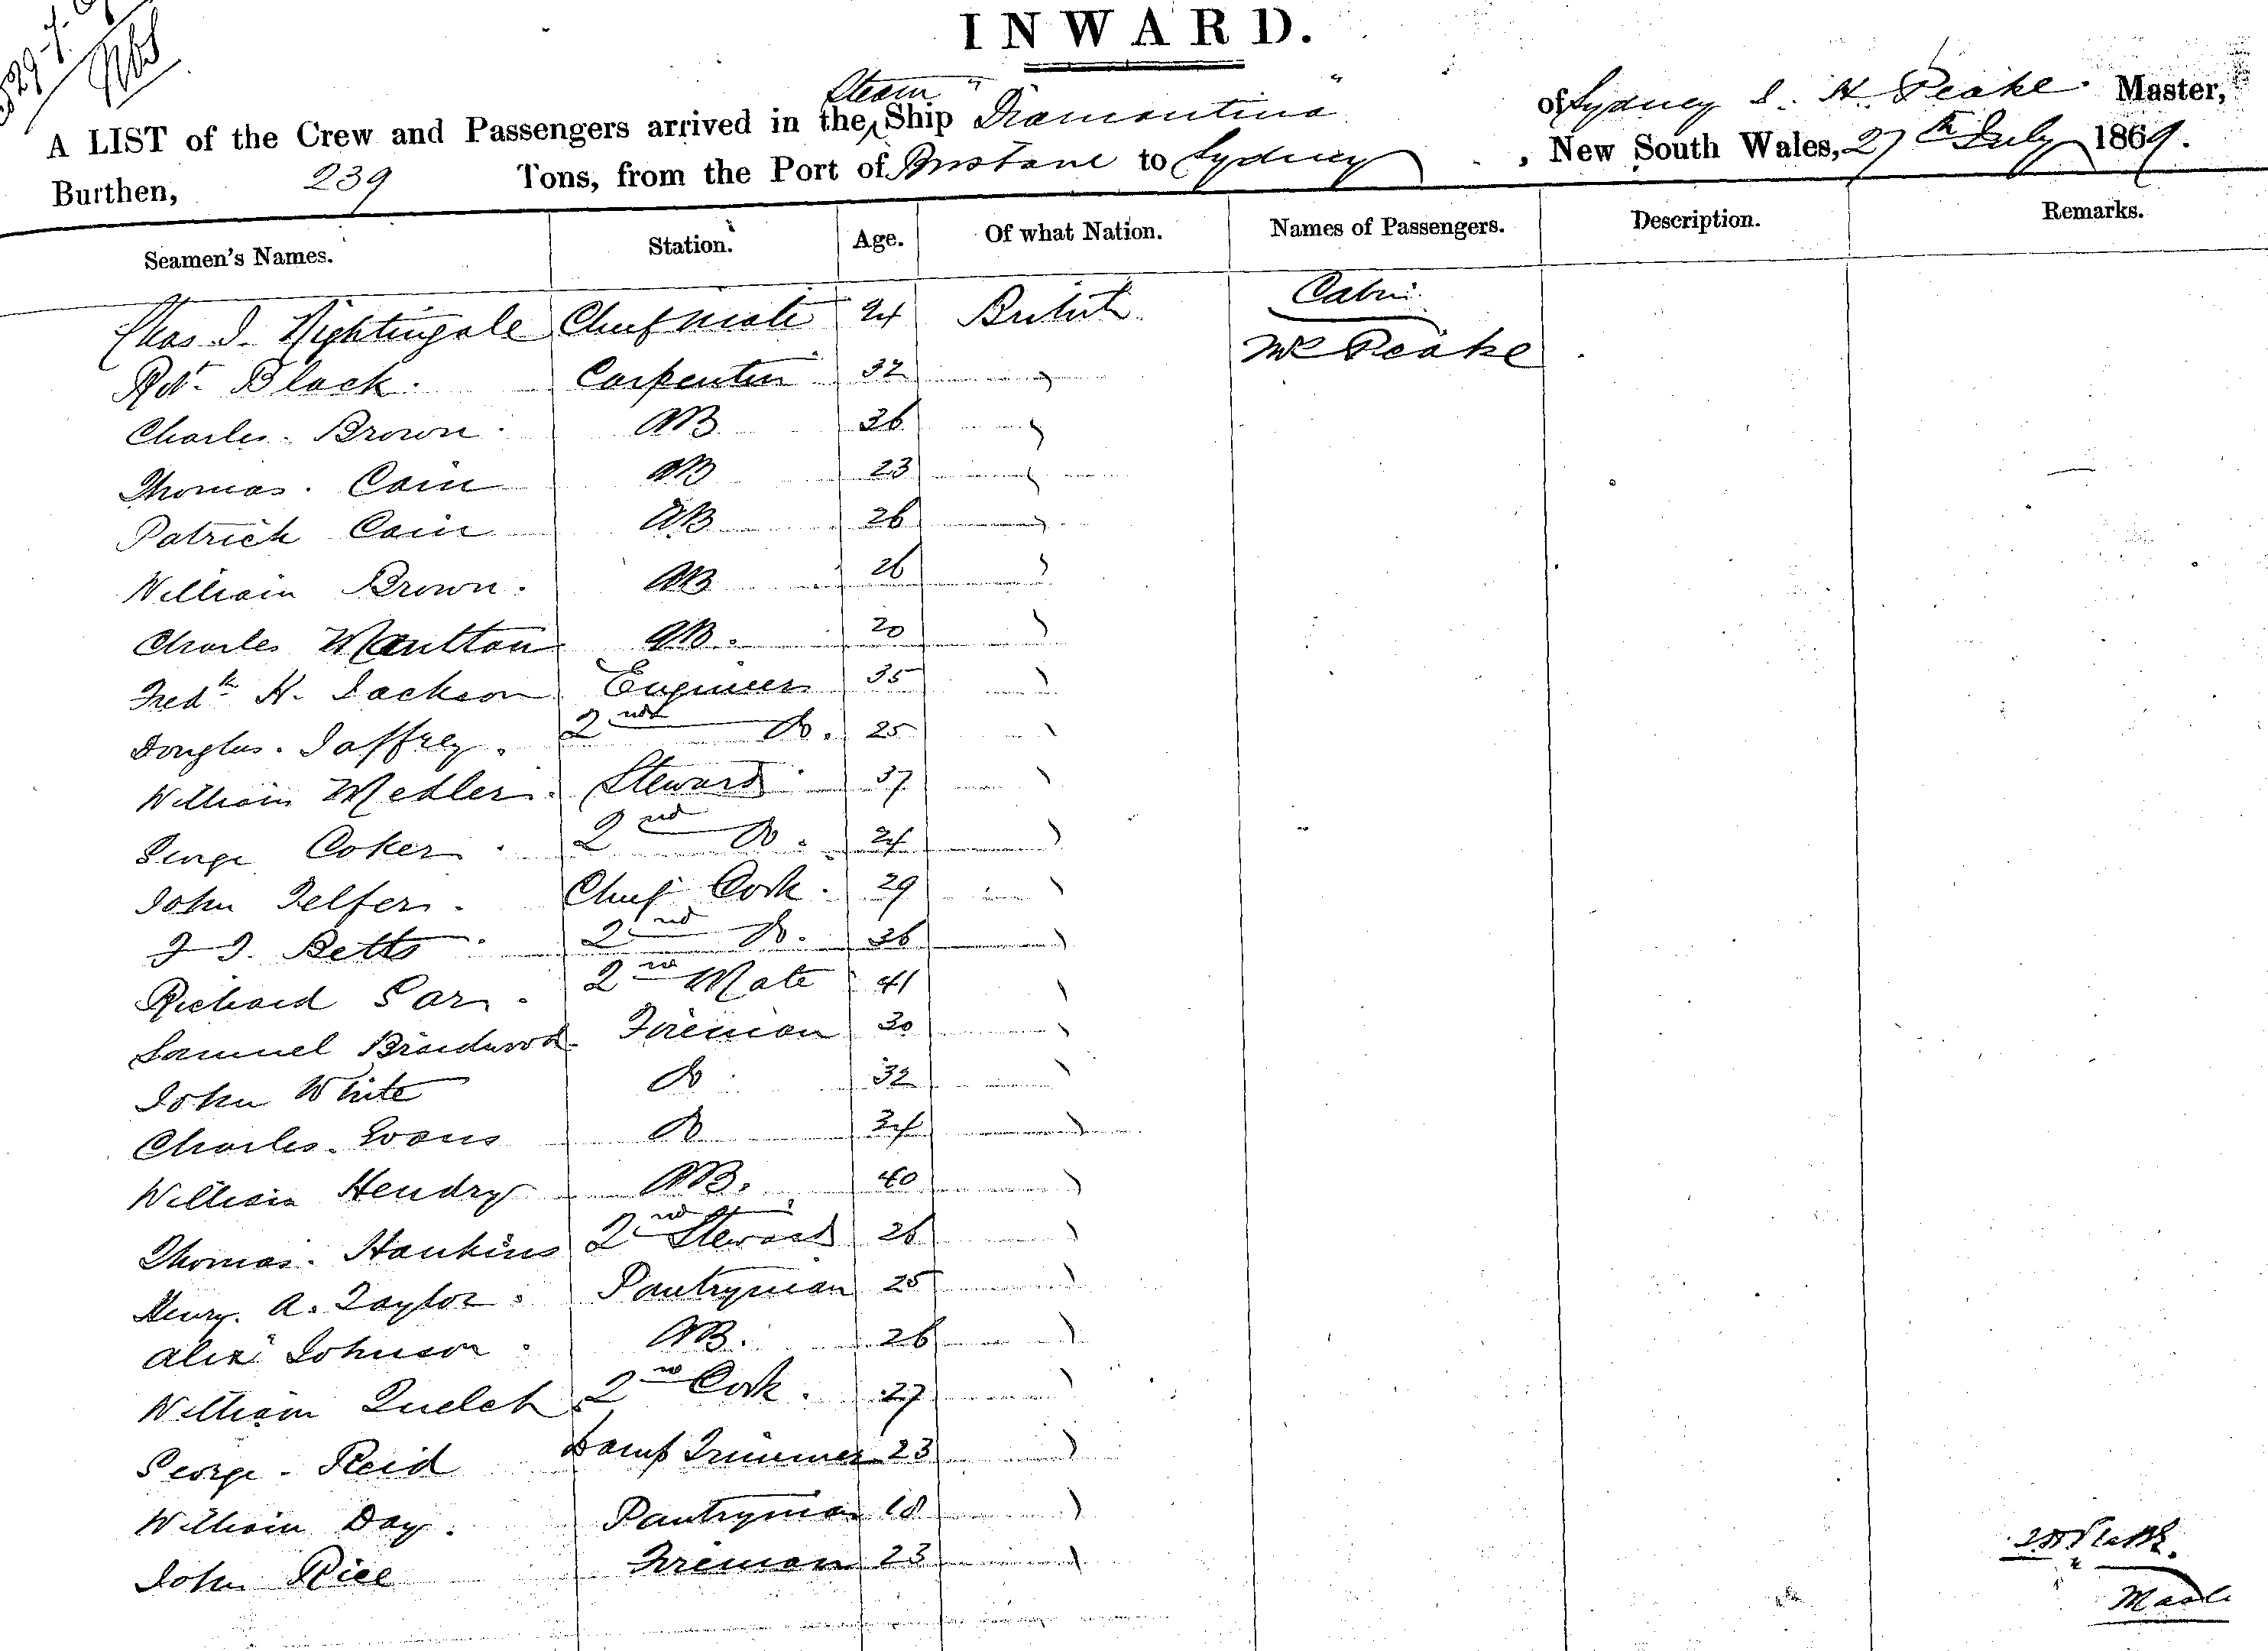 INWARD.
A LIST of the Crew and Passengers arrived in the Steam Ship "Diamantina" of Sydney S. H. Peake Master,
Burthen, 239 Tons, from the Port of Brisbane to Sydney, New South Wales, 27th July 1869.
Seamen's Names. Station. Age. Of what Nation. Names of Passengers. Description. Remarks.
Cabin
Chas. J. Nightingale Chief Mate 24 British
Mrs Peake
Robt. Black. Carpenter 32 "
Charles Brown AB 36 "
Thomas Cain AB 23 "
Patrick Cain AB 26 "
William Brown. AB 26 "
Charles Moulton AB. 20 "
Fredk H. Jackson Engineer 35 "
Douglas Jaffrey. 2nd Do. 25 "
William Medler. Steward 37 "
George Coker. 2nd Do. 24 "
John Telfer. Chief Cook. 29 "
J J. Betts. 2nd Do. 36 "
Richard 2nd Mate 41 "
Samuel Braidwood Fireman 30 "
John White Do 32 "
Charles Evans Do 34 "
William Hendry AB. 40 "
Thomas Hankins 2nd Steward 26 "
Henry. A. Taylor. Pantryman 25 "
Alexr Johnson. AB. 26 "
William Quelch 2nd Cook. 27 "
George Reid Lamp Trimmer 23 "
William Day. Pantryman 18 "
John Rice Fireman 23 "